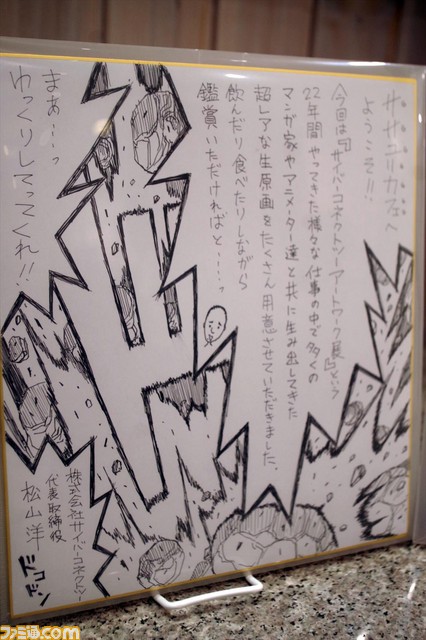 ササユカフェへ
ようこそ!!
今回は『サイバーコネクトツーアートワーク展』という
22年間やってきた様々な仕事の中で多くの
マンガ家やアニメーター達と共に生み出してきた
超レアな生原画をたくさん用意させていただきました、
飲んだり食べたりしながら
鑑賞いただければと……っ
まぁ……っ
ゆっくりしてってくれ!!
株式会社サイバーコネクトツー
代表取締役
松山洋
ドコドン
ファミ通.com